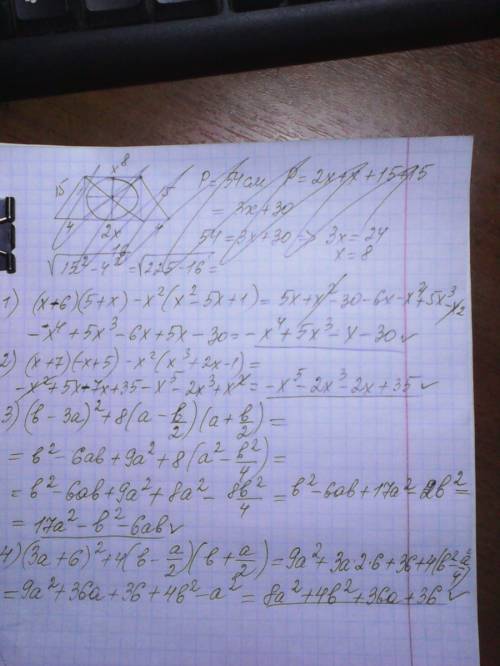 x 8
15 15 P = 54 см P = 2x + x + 15 + 15
= 3x + 30
4 2x 4
16 54 = 3x + 30 => 3x = 24
√15² - 4² = √225 - 16 = x = 8
1) (x + 6)(5 + x) - x²(x² - 5x + 1) = 5x + x² - 30 - 6x - x⁴ + 5x³ - x²
- x⁴ + 5x³ - 6x + 5x - 30 = - x⁴ + 5x³ - x - 30 ✓
2) (x + 7)(-x + 5) - x²(x³ + 2x - 1) =
- x² + 5x - 7x + 35 - x⁵ - 2x³ + x² = - x⁵ - 2x³ - 2x + 35 ✓
3) (b - 3a)² + 8(a - b/2)(a + b/2) =
= b² - 6ab + 9a² + 8(a² - b²/4) =
= b² - 6ab + 9a² + 8a² - 8b²/4 = b² - 6ab + 17a² - 2b² =
= 17a² - b² - 6ab ✓
4) (3a + 6)² + 4(b - a/2)(b + a/2) = 9a² + 3a · 2 · 6 + 36 + 4(b² - a²/4)
= 9a² + 36a + 36 + 4b² - a² = 8a² + 4b² + 36a + 36 ✓